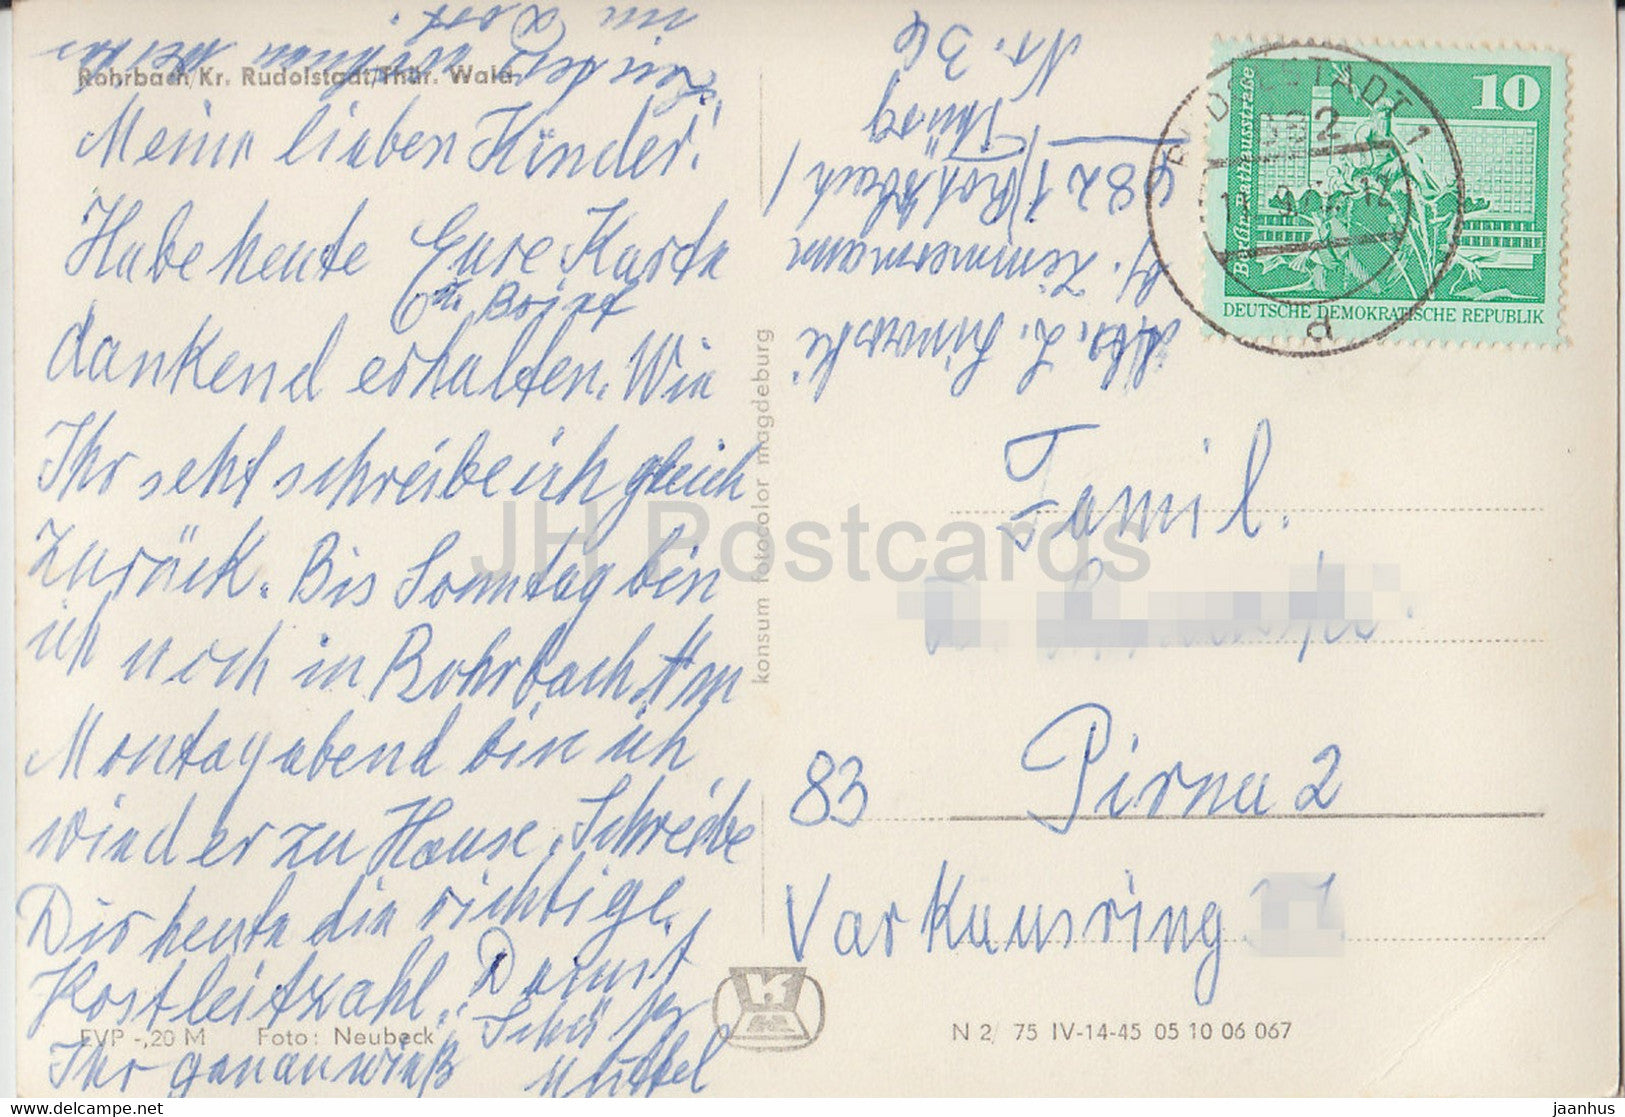 Rohrbach/Kr. Rudolstadt/Thür. Wald
Meine lieben Kinder!
Habe heute Eure Karte
u. Brief
dankend erhalten. Wie
Ihr seht schreibe ich gleich
zurück. Bis Sonntag bin
ich noch in Rohrbach. Am
Montagabend bin ich
wieder zu Hause. Schreibe
Dir heute die richtige
Postleitzahl. Damit
Ihr genau wißt
Mittel
in Dorf.
Abs. L.
Zimmermann
6821 Rohrbach/
Thürg
Nr. 36
RUDOLSTADT 1
682
d
10
Berlin-Rathausstraße
DEUTSCHE DEMOKRATISCHE REPUBLIK
Famil.
83 Pirna 2
Varkausring
konsum fotocolor magdeburg
EVP -,20 M Foto: Neubeck
K
N 2/ 75 IV-14-45 05 10 06 067
JH Postcards
https://www.delcampe.net
jaanhus